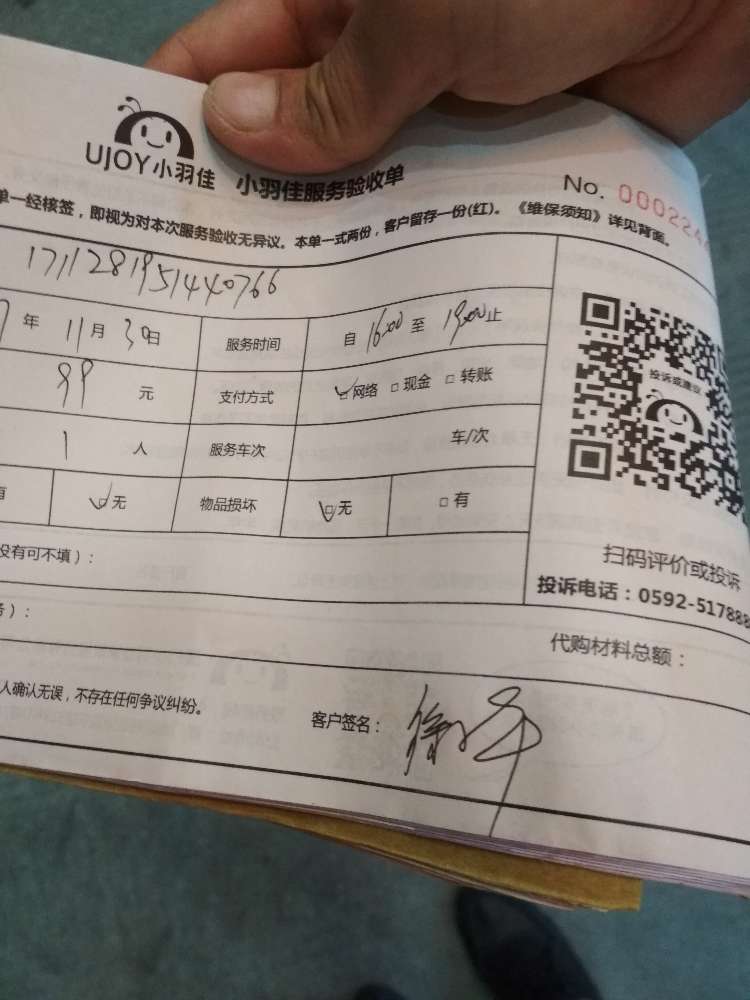 UJOY小羽佳 小羽佳服务验收单 No. 000224
单一经核签，即视为对本次服务验收无异议。本单一式两份，客户留存一份(红)。《维保须知》详见背面。
1711281951440766
7年 11月 30日 服务时间 自 16:00 至 19:00 止
99 元 支付方式 网络 现金 转账
1 人 服务车次 车/次
有 无 物品损坏 无 有
投诉或建议
没有可不填）：
扫码评价或投诉
投诉电话：0592-517888
务）：
代购材料总额：
人确认无误，不存在任何争议纠纷。
客户签名：